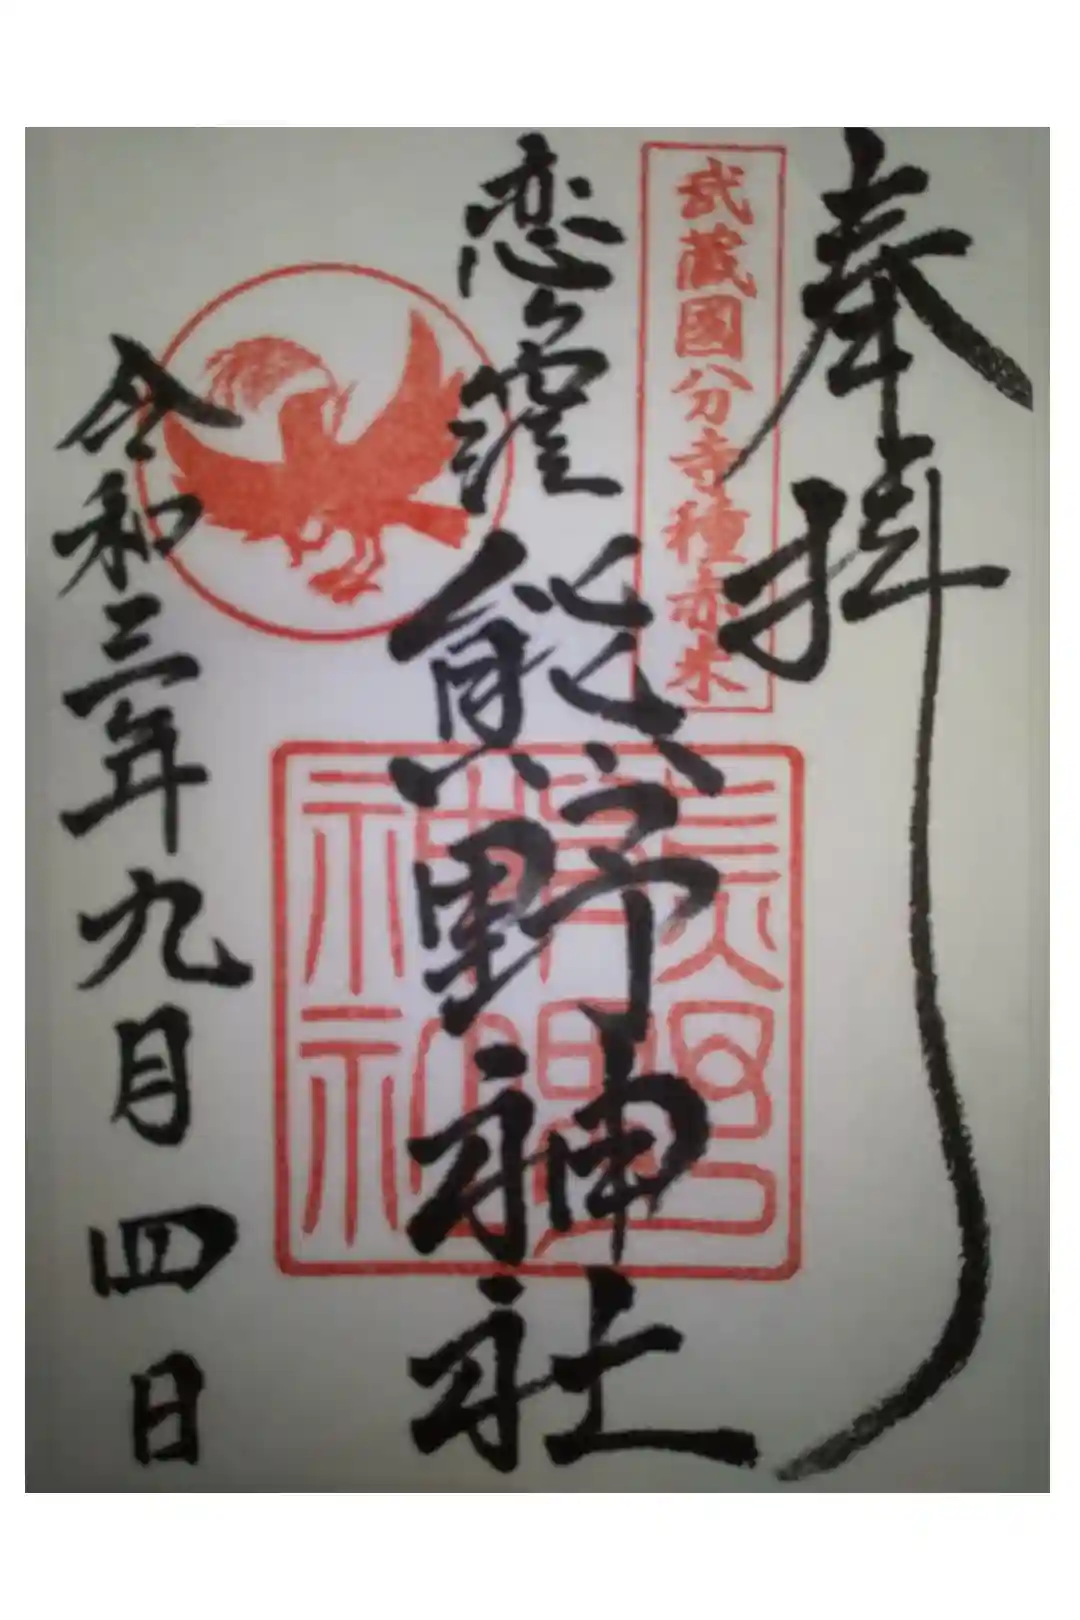 奉拝
武蔵國分寺種赤米
恋ヶ窪熊野神社
令和三年九月四日